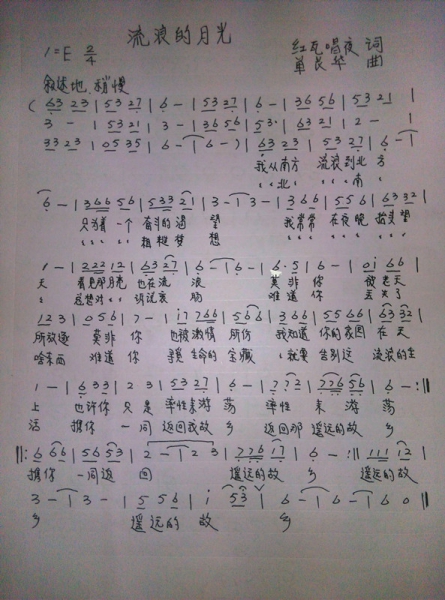 流浪的月光
1=E 2/4
红瓦唱夜 词
单长华 曲
叙述地 稍慢
( 63 23 | 53 27 | 6 - | 53 27 | 6 - | 36 56 | 53 21 |
3 - | 53 21 | 3 - | 36 56 | 53· | 63 21 | 2 - |
33 23 | 05 35 | 6 - | 6 - ) | 63 23 | 53 27 | 6 - |
我从南方 流浪到北方
〃〃北〃 〃〃〃南〃
6 - | 366 56 | 533 21 | 3 - | 3 - | 366 | 55 56 | 6332 |
只为着一个奋斗的渴望 我常常在夜晚抬头望
〃〃〃〃粗糙梦想 〃〃〃〃〃〃〃〃
1 - | 222 12 | 63 27 | 6 - | 6 - | 6· 5 | 6 - | 01 66 |
天 看见那月亮也在流浪 莫非你 被老天
〃 难道你 丢失了
12 3 | 05 6 | 7 - | 17 766 | 566 | 366 | 55 66 | 63 32 |
所放逐 莫非你 也被激情所伤 我知道你的家园在天
啥东西 难道你 寻觅生命的宝藏 〃就要告别这流浪的生
1 - | 6 33 | 2 3 | 53 27 | 6 - | 772 | 776 56 | 6 - :||
上 也许你只是 率性来游荡 率性来游荡
活 携你一同 返回我故乡 返回那遥远的故乡
||: 6 66 | 56 53 | 2 - | 2 3 | 776 17 | 6 - :|| 111 12 |
携你一同返回 遥远的故乡 遥远的故
3 - | 3 - | 5 56 | 1 53 | 6 - | 6 - | 6 0 ||
乡 遥远的故乡